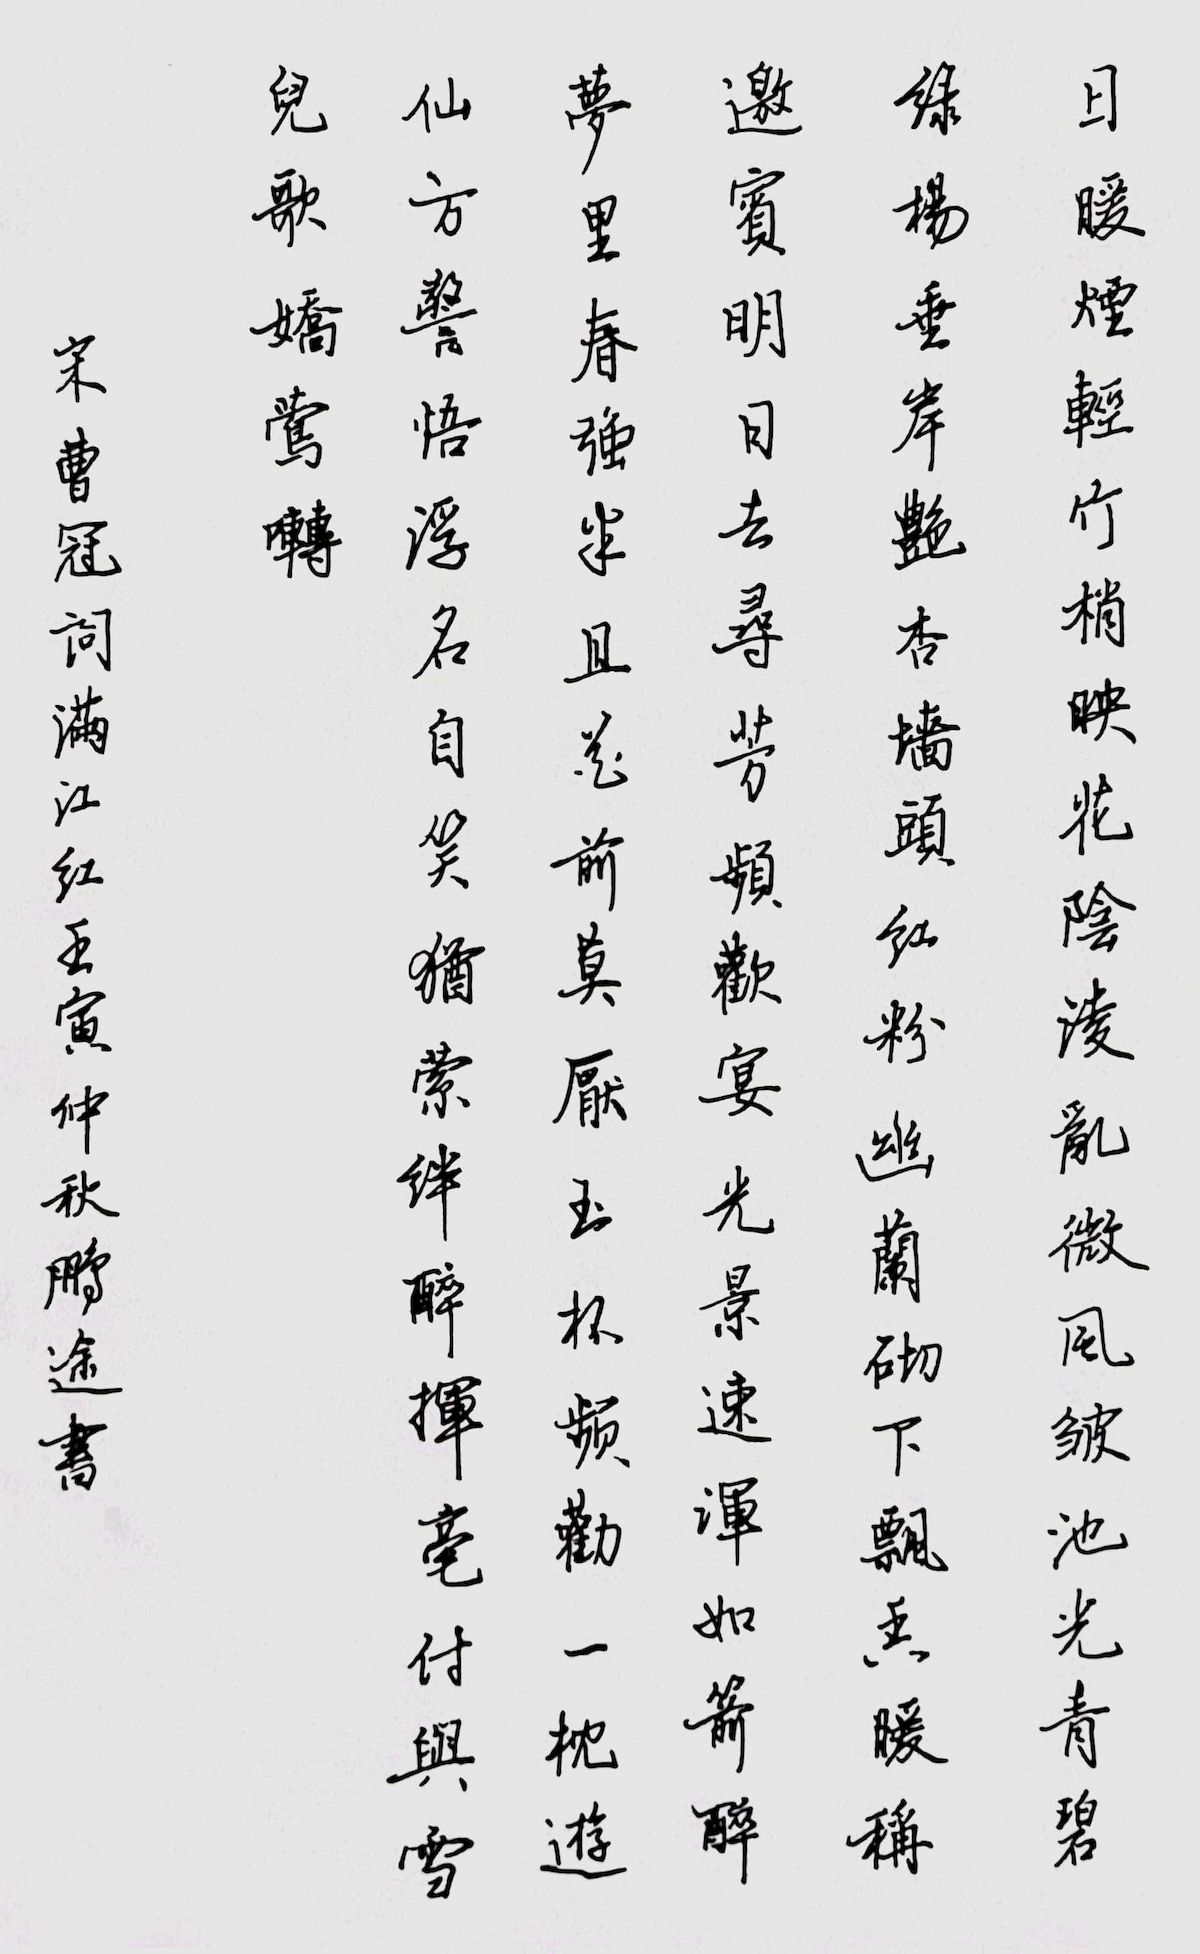 日暖煙輕竹梢映花陰淩亂微風皱池光青碧
綠楊垂岸艷杏墻頭紅粉幽蘭砌下飄香暖稱
邀賓明日去尋芳頻歡宴光景速渾如箭醉
夢里春強半且花前莫厭玉杯頻勸一枕遊
仙方警悟浮名自笑猶縈絆醉揮毫付與雪
兒歌嬌鶯囀
宋曹冠词满江红壬寅仲秋鹏途書